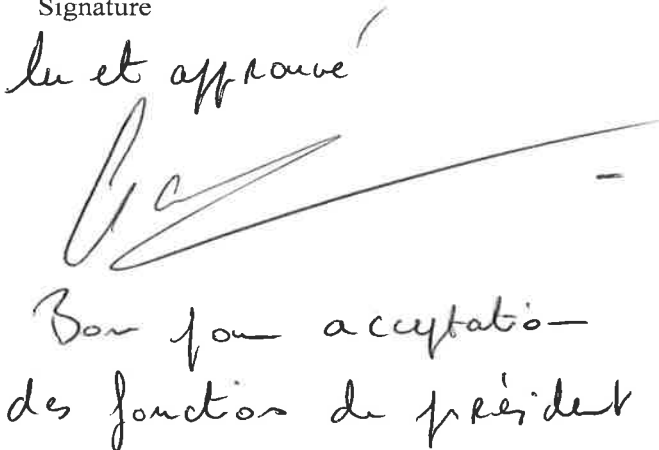 Signature
lu et approuvé
Bon pour acceptation
des fonction de président